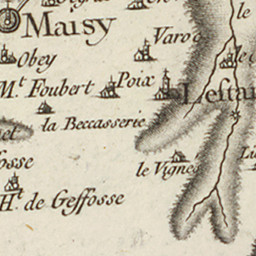 le
Maisy
Varo
Obey
le
Mt. Foubert
Poix
Lestan
la Beccasserie
le Vignes
osse
Ht. de Geffosse